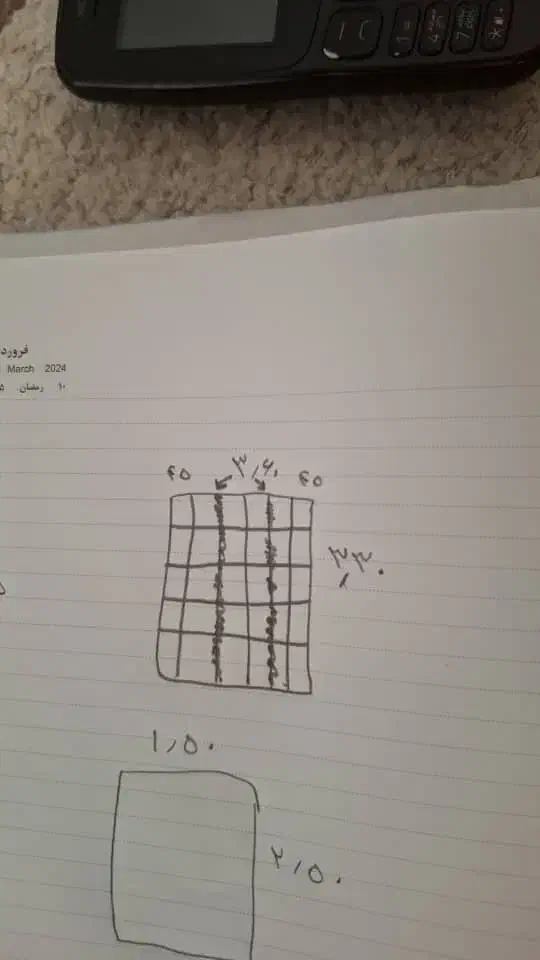 فرورد
March 2024
۱۰ رمضان
۴۵ ۳٫۶۰ ۴۵
۳٫۳۰
۱٫۵۰
۲٫۵۰